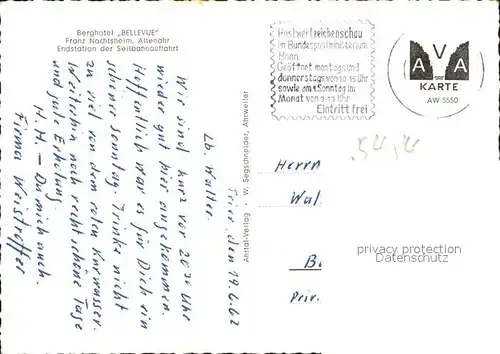 Berghotel „BELLEVUE"
Franz Nachtsheim, Altenahr
Endstation der Seilbahnauffahrt
Postwertzeichenschau
im Bundespostministerium
Bonn
Geöffnet montags und
donnerstags von 10-15 Uhr
sowie am 1. Sonntag im
Monat von 9-13 Uhr
Eintritt frei
AVA
KARTE
AW 5550
Trier, den 19.6.62
Lb. Walter.
Wir sind kurz vor 20⁰⁰ Uhr
wieder gut hier angekommen.
Hoffentlich war es für Dich ein
schöner Sonntag. Trinke nicht
zu viel von dem roten Kurwasser.
Weiterhin noch recht schöne Tage
und gute Erholung.
H. H. – Da mich auch.
Firma Weistroffer
Ahrtal-Verlag · W. Segschneider, Ahrweiler
Herrn
Wal
B
Priv.
privacy protection
Datenschutz